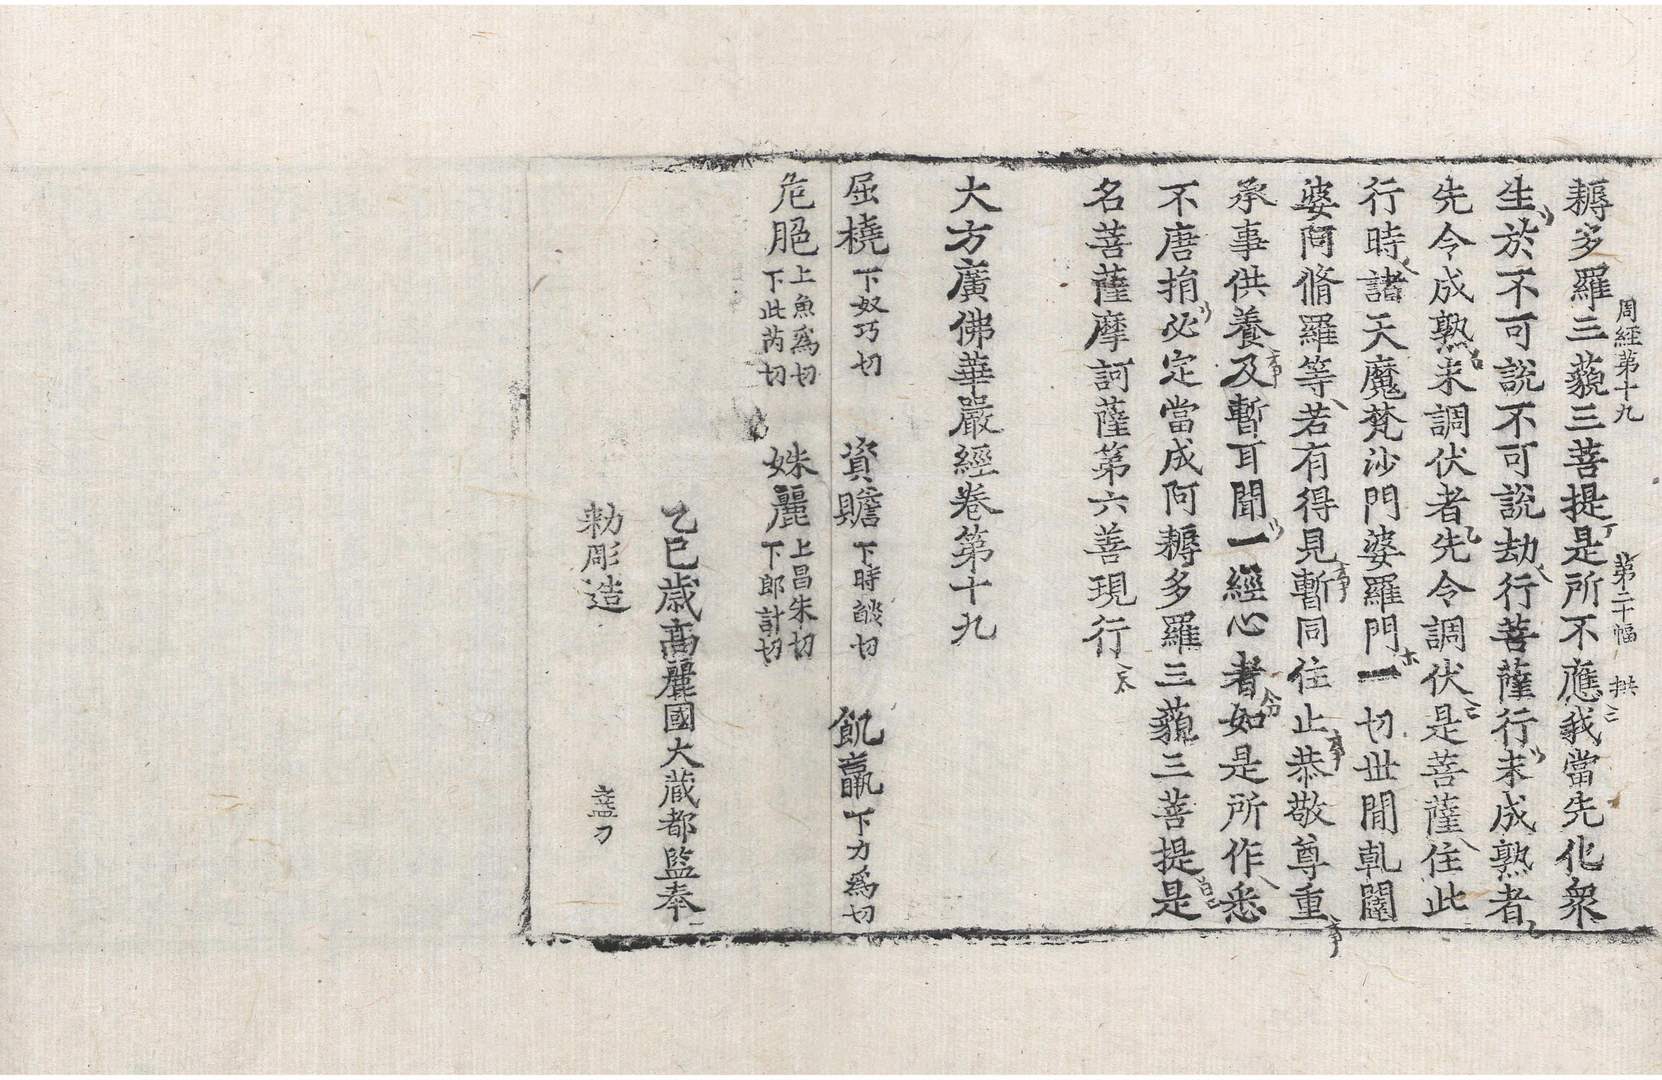 周經第十九 第二十幅 拱
耨多羅三藐三菩提是所不應我當先化衆
生於不可說不可說劫行菩薩行未成熟者
先令成熟未調伏者先令調伏是菩薩住此
行時諸天魔梵沙門婆羅門一切世閒乹闥
婆阿脩羅等若有得見暫同住止恭敬尊重
承事供養及暫耳聞一經心者如是所作悉
不唐捐必定當成阿耨多羅三藐三菩提是
名菩薩摩訶薩第六善現行
大方廣佛華嚴經卷第十九
屈橈下奴巧切 資贍下時䜖切 飢羸下力爲切
危脆上魚爲切下此芮切 姝麗上昌朱切下郎計切
乙巳歲高麗國大藏都監奉
勑彫造 盍刀